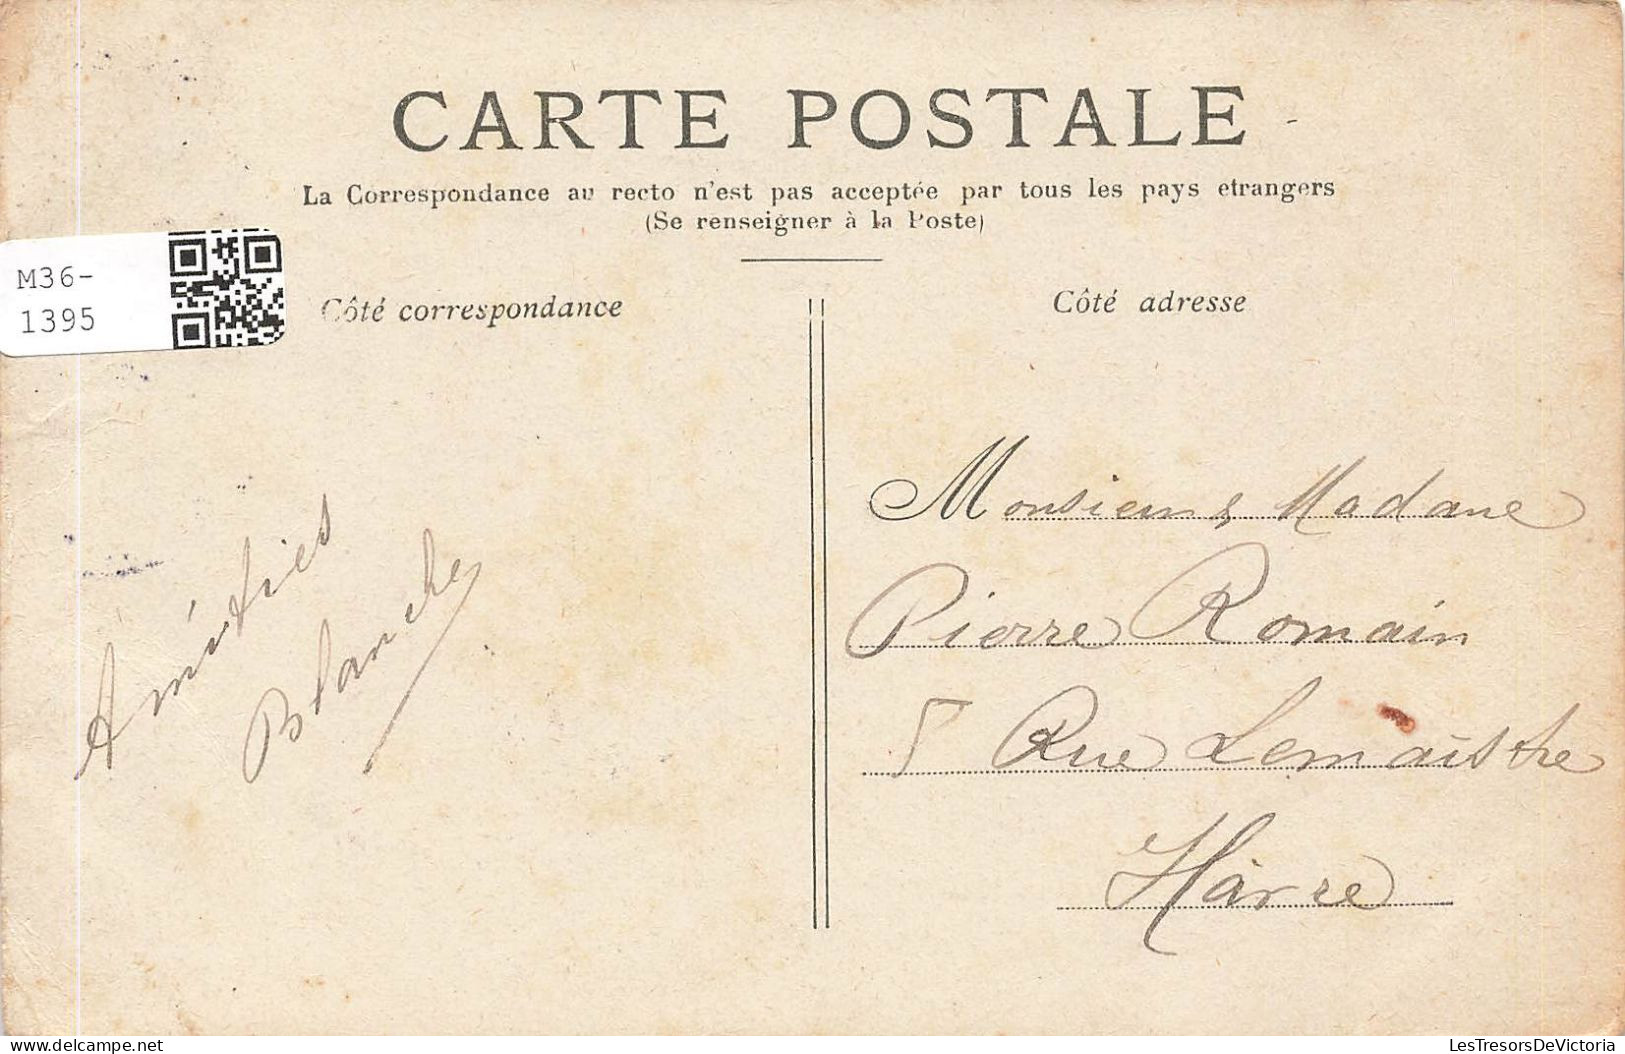 CARTE POSTALE
La Correspondance au recto n'est pas acceptée par tous les pays etrangers
(Se renseigner à la Poste)
M36-
1395
Côté correspondance
Côté adresse
Amitiés
Blanche
Monsieur & Madame
Pierre Romain
5 Rue Lemaistre
Hâvre
delcampe.net
LesTresorsDeVictoria